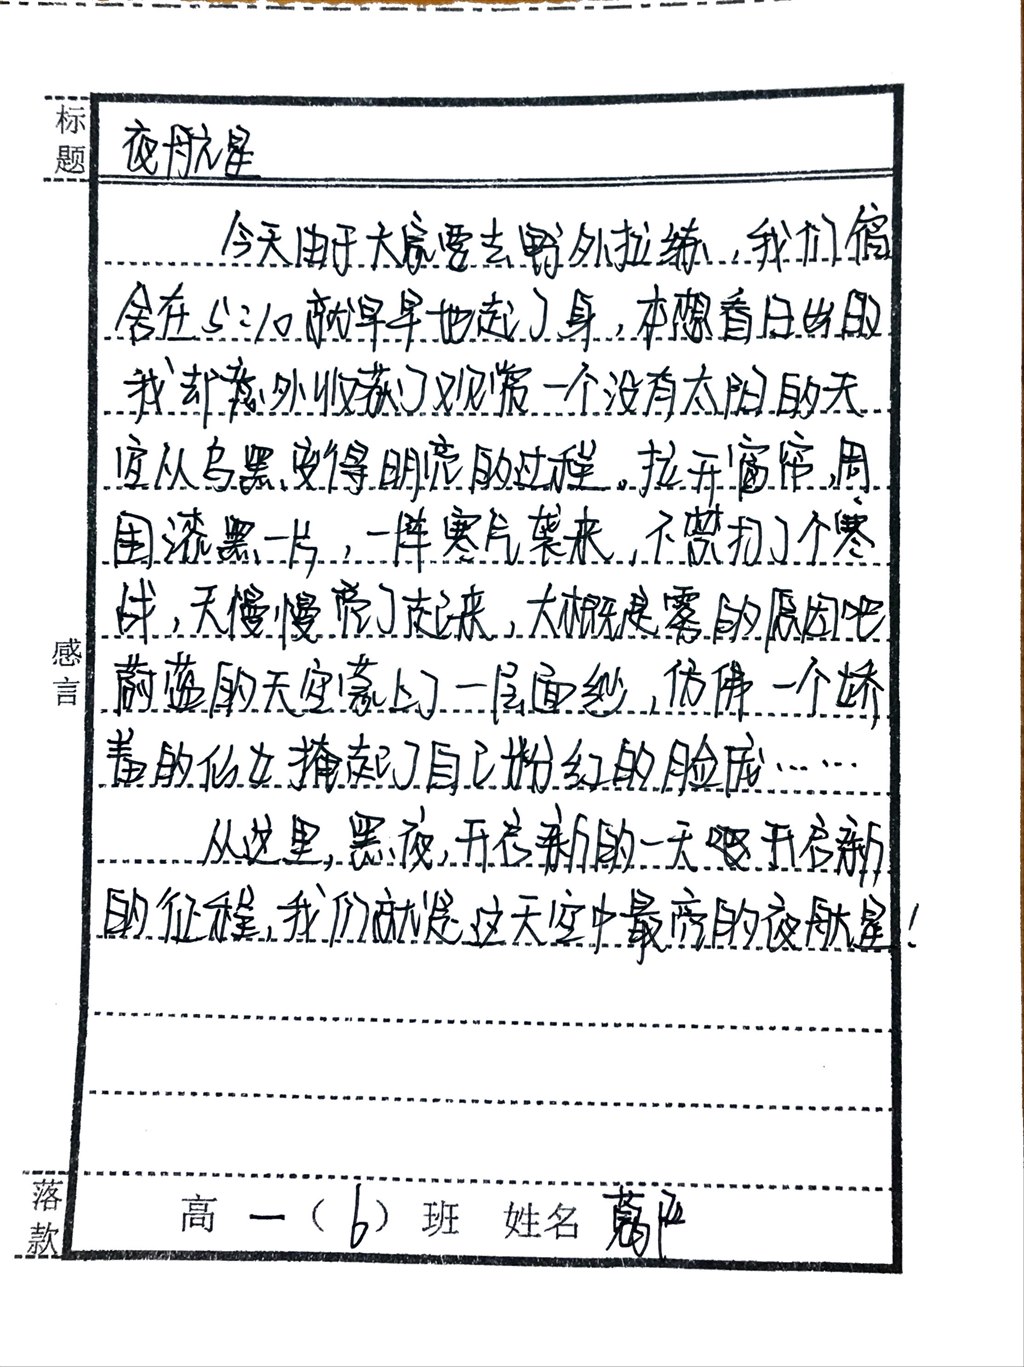 标题
夜航星
今天由于大家要去野外拉练，我们宿
舍在5:10就早早地起了身，本想看日出的
我却意外收获了观察一个没有太阳的天
空从乌黑变得明亮的过程。拉开窗帘，周
围漆黑一片，一阵寒气袭来，不禁打了个寒
战，天慢慢亮了起来，大概是雾的原因吧
蔚蓝的天空蒙上了一层面纱，仿佛一个娇
羞的仙女掩起了自己粉红的脸庞……
从这里，黑夜，开启新的一天 开启新
的征程，我们就是这天空中最亮的夜航星！
感言
落款
高一（6）班 姓名 葛